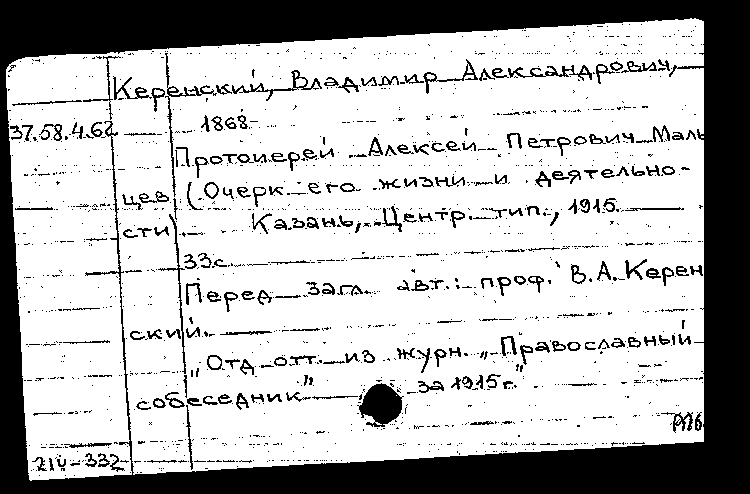 Керенский, Владимир Александрович,
37.58.4.62
1868-
Протоиерей Алексей Петрович Маль
цев (Очерк его жизни и деятельно-
сти). Казань, Центр. тип., 1915
33с.
Перед загл. авт.: проф. В.А.Керен
ский.
„Отд. отт. из журн. „Православный
собеседник" за 1915г."
21υ-332